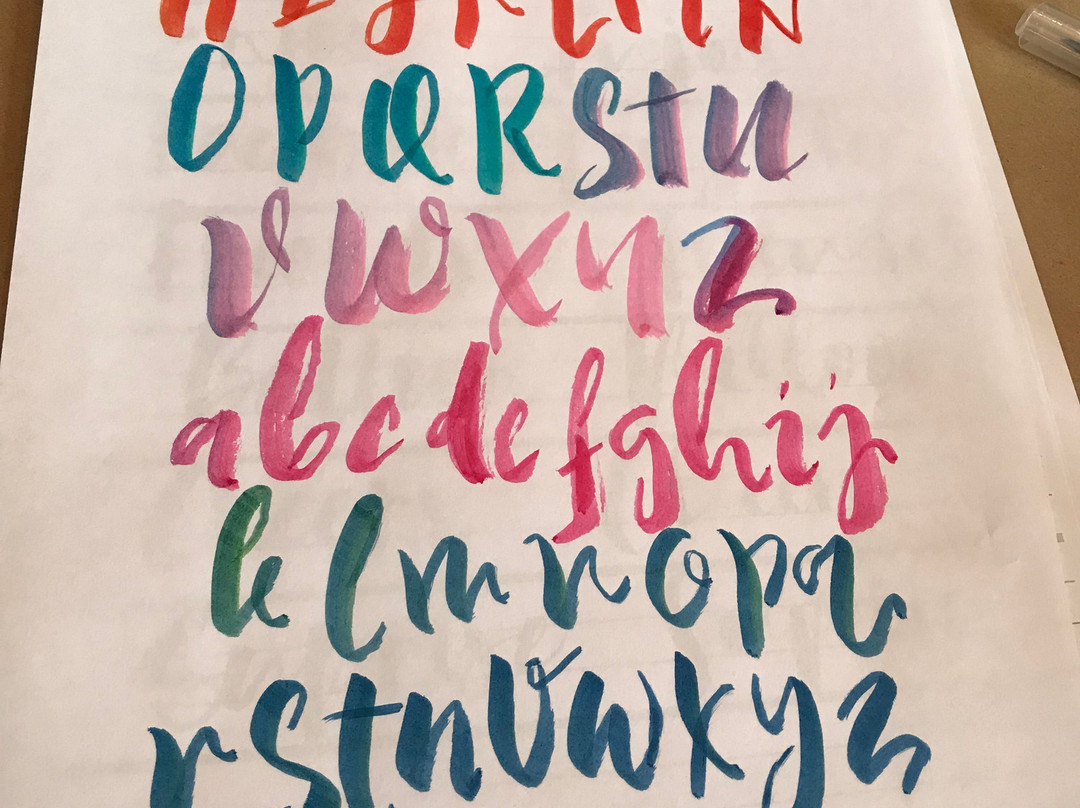 H I J K L M N
O P Q R S T U
V W X Y Z
a b c d e f g h i j
k l m n o p q
r s t u v w x y z